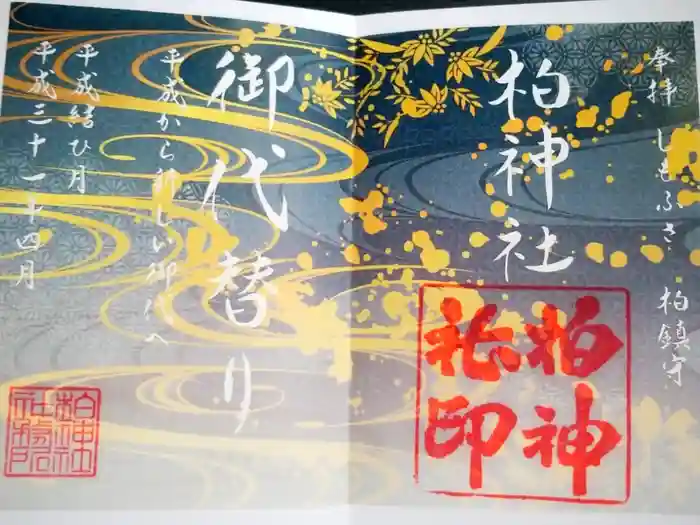 奉拝 しもふさ 柏鎮守
柏神社
柏神
社印
御代替り
平成から新しい御代へ
平成結び月
平成三十一年四月
柏神社
社務所